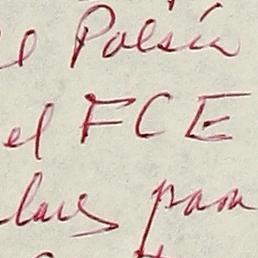 el Poesía
el FCE
para